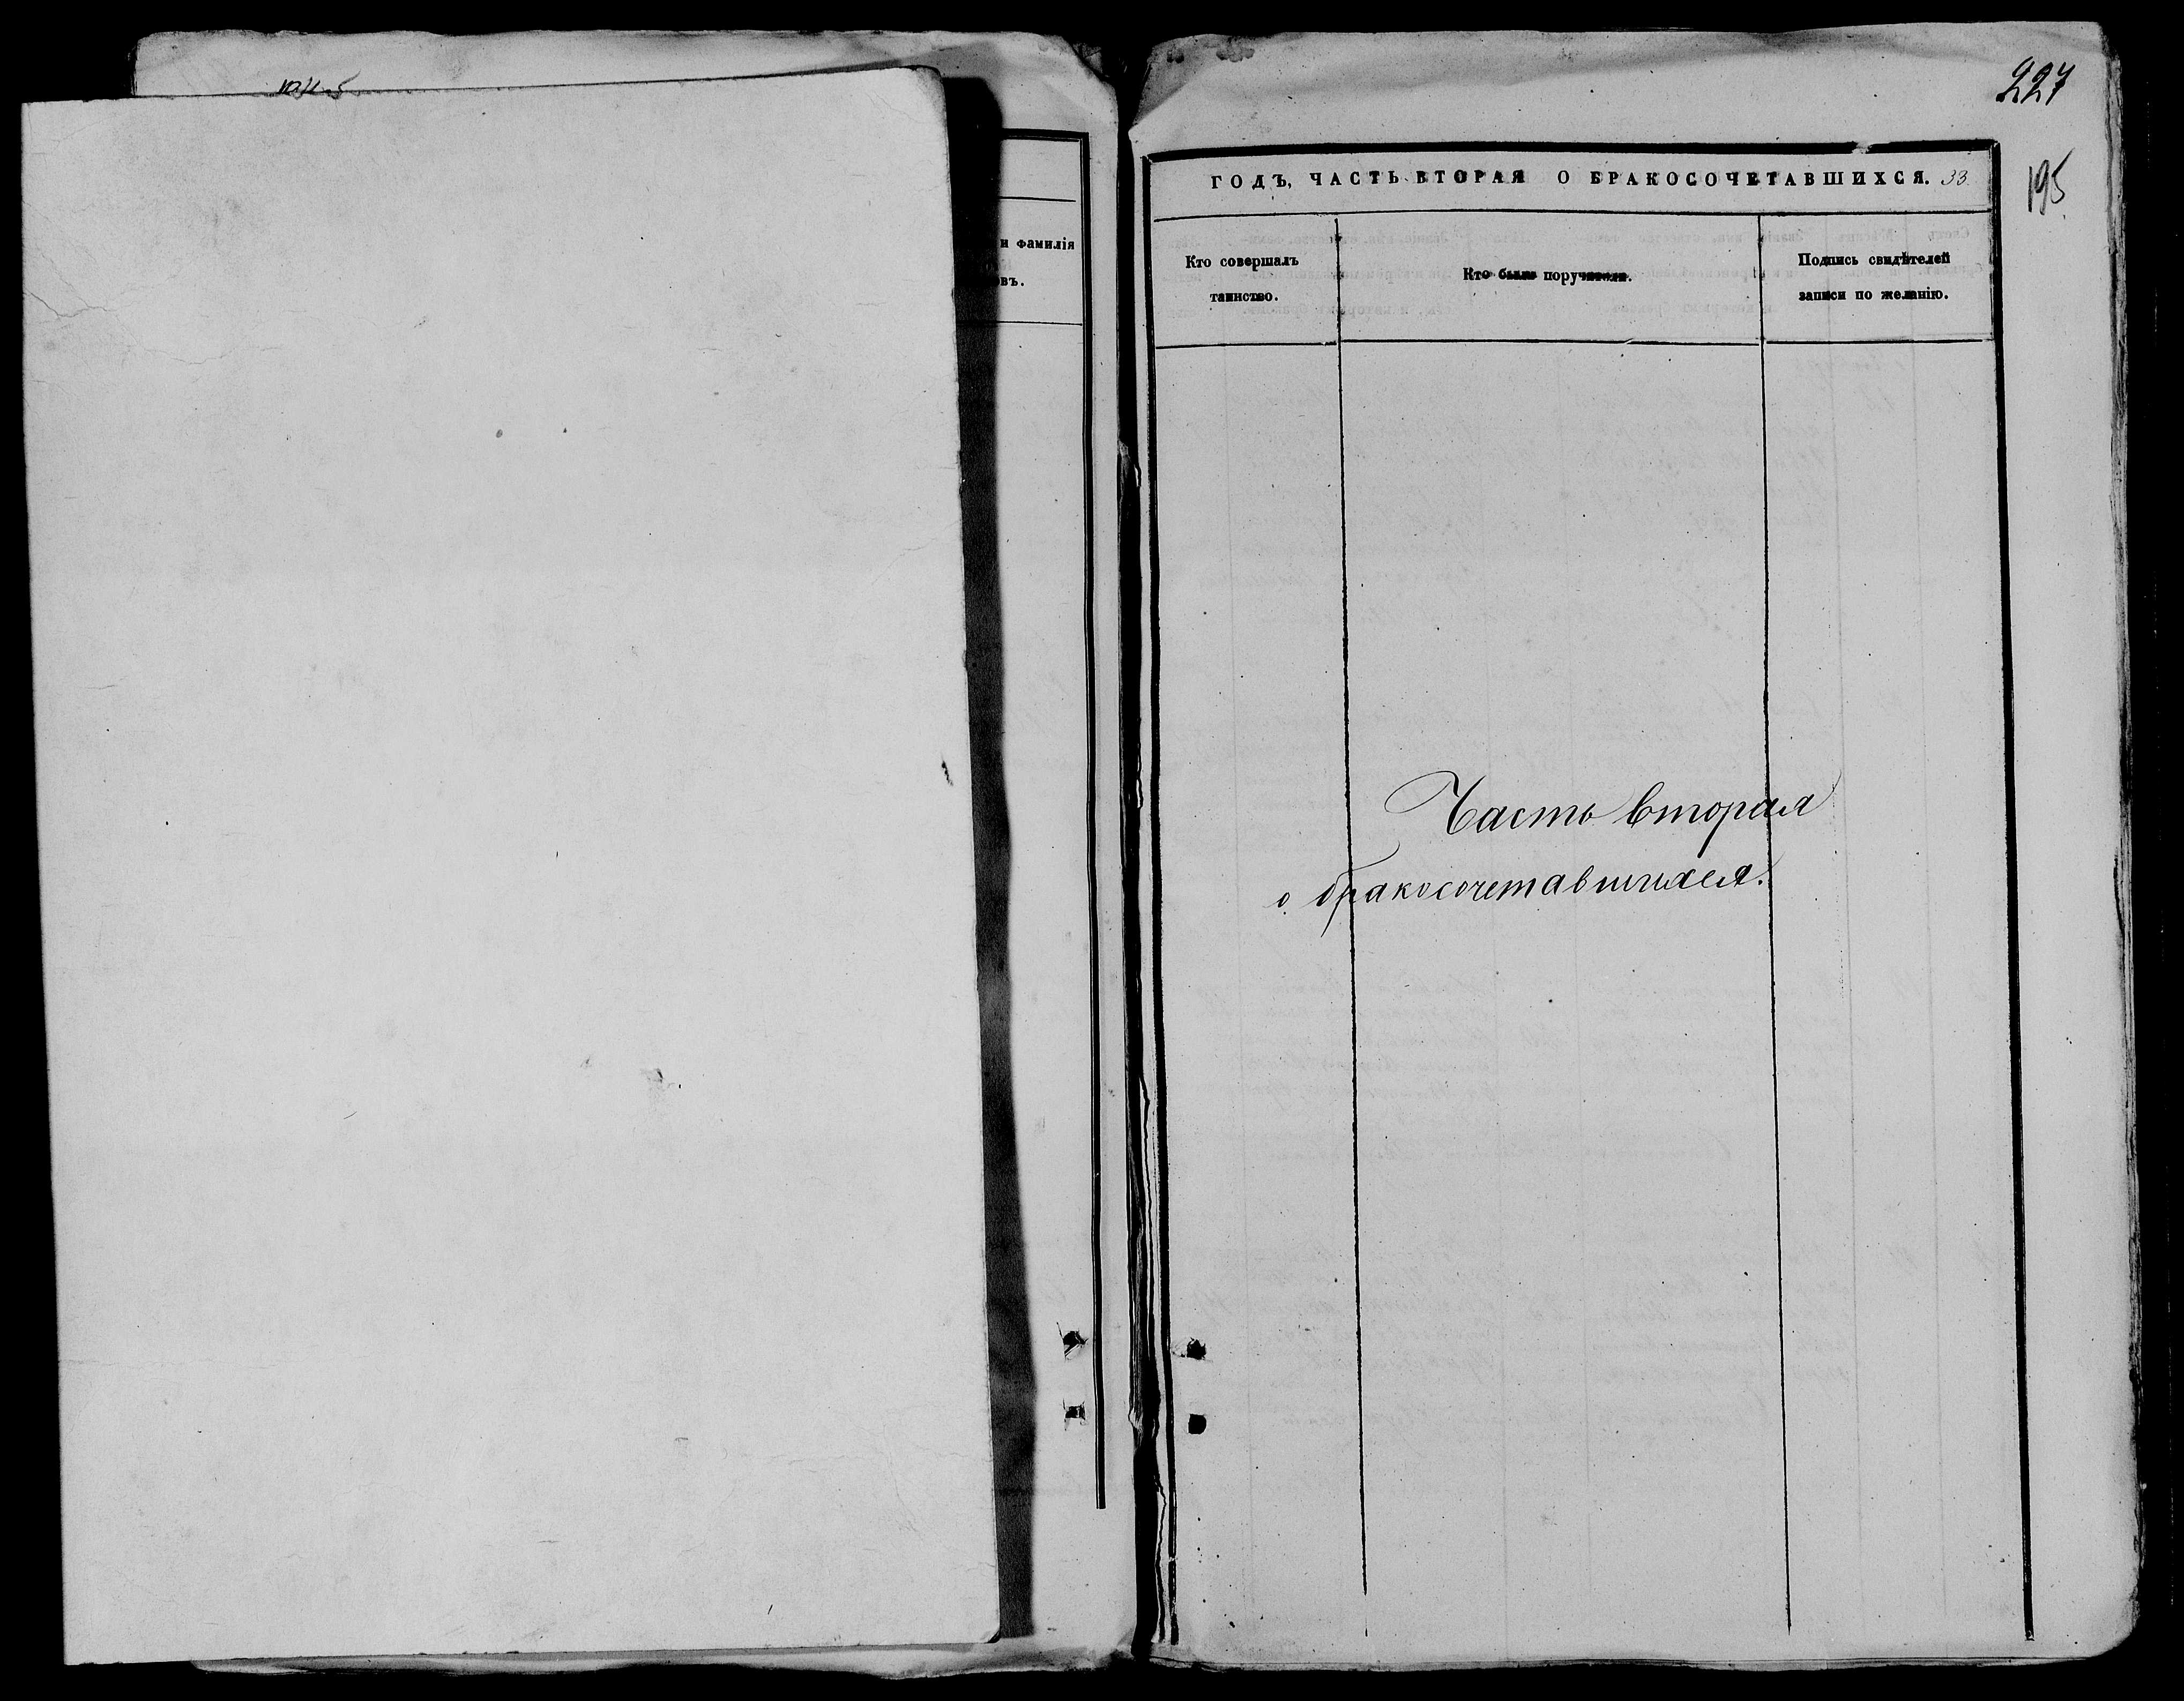 и фамилія
овъ.
227
195
ГОДЪ, ЧАСТЬ ВТОРАЯ О БРАКОСОЧЕТАВШИХСЯ. 33
Кто совершалъ
таинство.
Кто были поручители.
Подпись свидѣтелей
записи по желанію.
Часть вторая
о бракосочетавшихся.